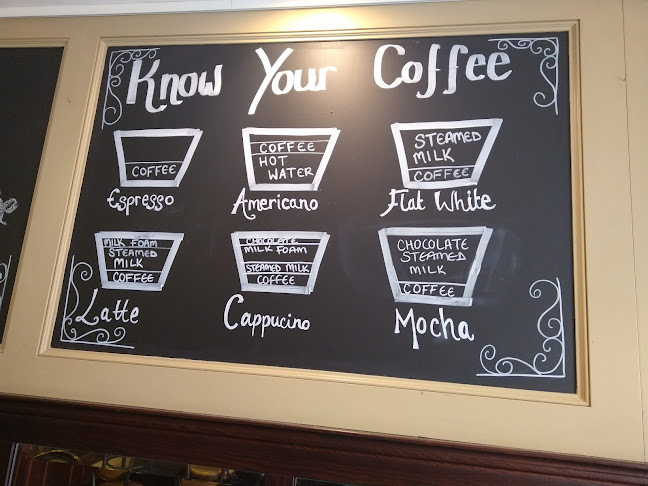 Know Your Coffee
COFFEE
Espresso
COFFEE
HOT
WATER
Americano
STEAMED
MILK
COFFEE
Flat White
MILK FOAM
STEAMED
MILK
COFFEE
Latte
CHOCOLATE
MILK FOAM
STEAMED MILK
COFFEE
Cappucino
CHOCOLATE
STEAMED
MILK
COFFEE
Mocha